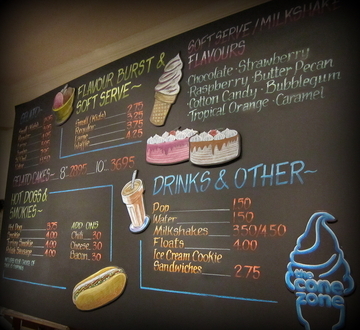 SOFT SERVE/MILKSHAKE
FLAVOURS
Chocolate · Strawberry
Raspberry · Butter Pecan
Cotton Candy · Bubblegum
Tropical Orange · Caramel
FLAVOUR BURST &
SOFT SERVE~
Small (Kids) 2.75
Regular
Large
Waffle 4.25
GELATO CAKES~ 8" 29.95 10" 36.95
HOT DOGS &
SMOKIES~
Hot Dog 3.75
4.00
4.00
4.00
ADD ONS
Chili .30
Cheese .30
Bacon .30
DRINKS & OTHER~
Pop 1.50
Water 1.50
Milkshakes 3.50/4.50
Floats 4.00
Ice Cream Cookie
Sandwiches 2.75
the
cone
zone